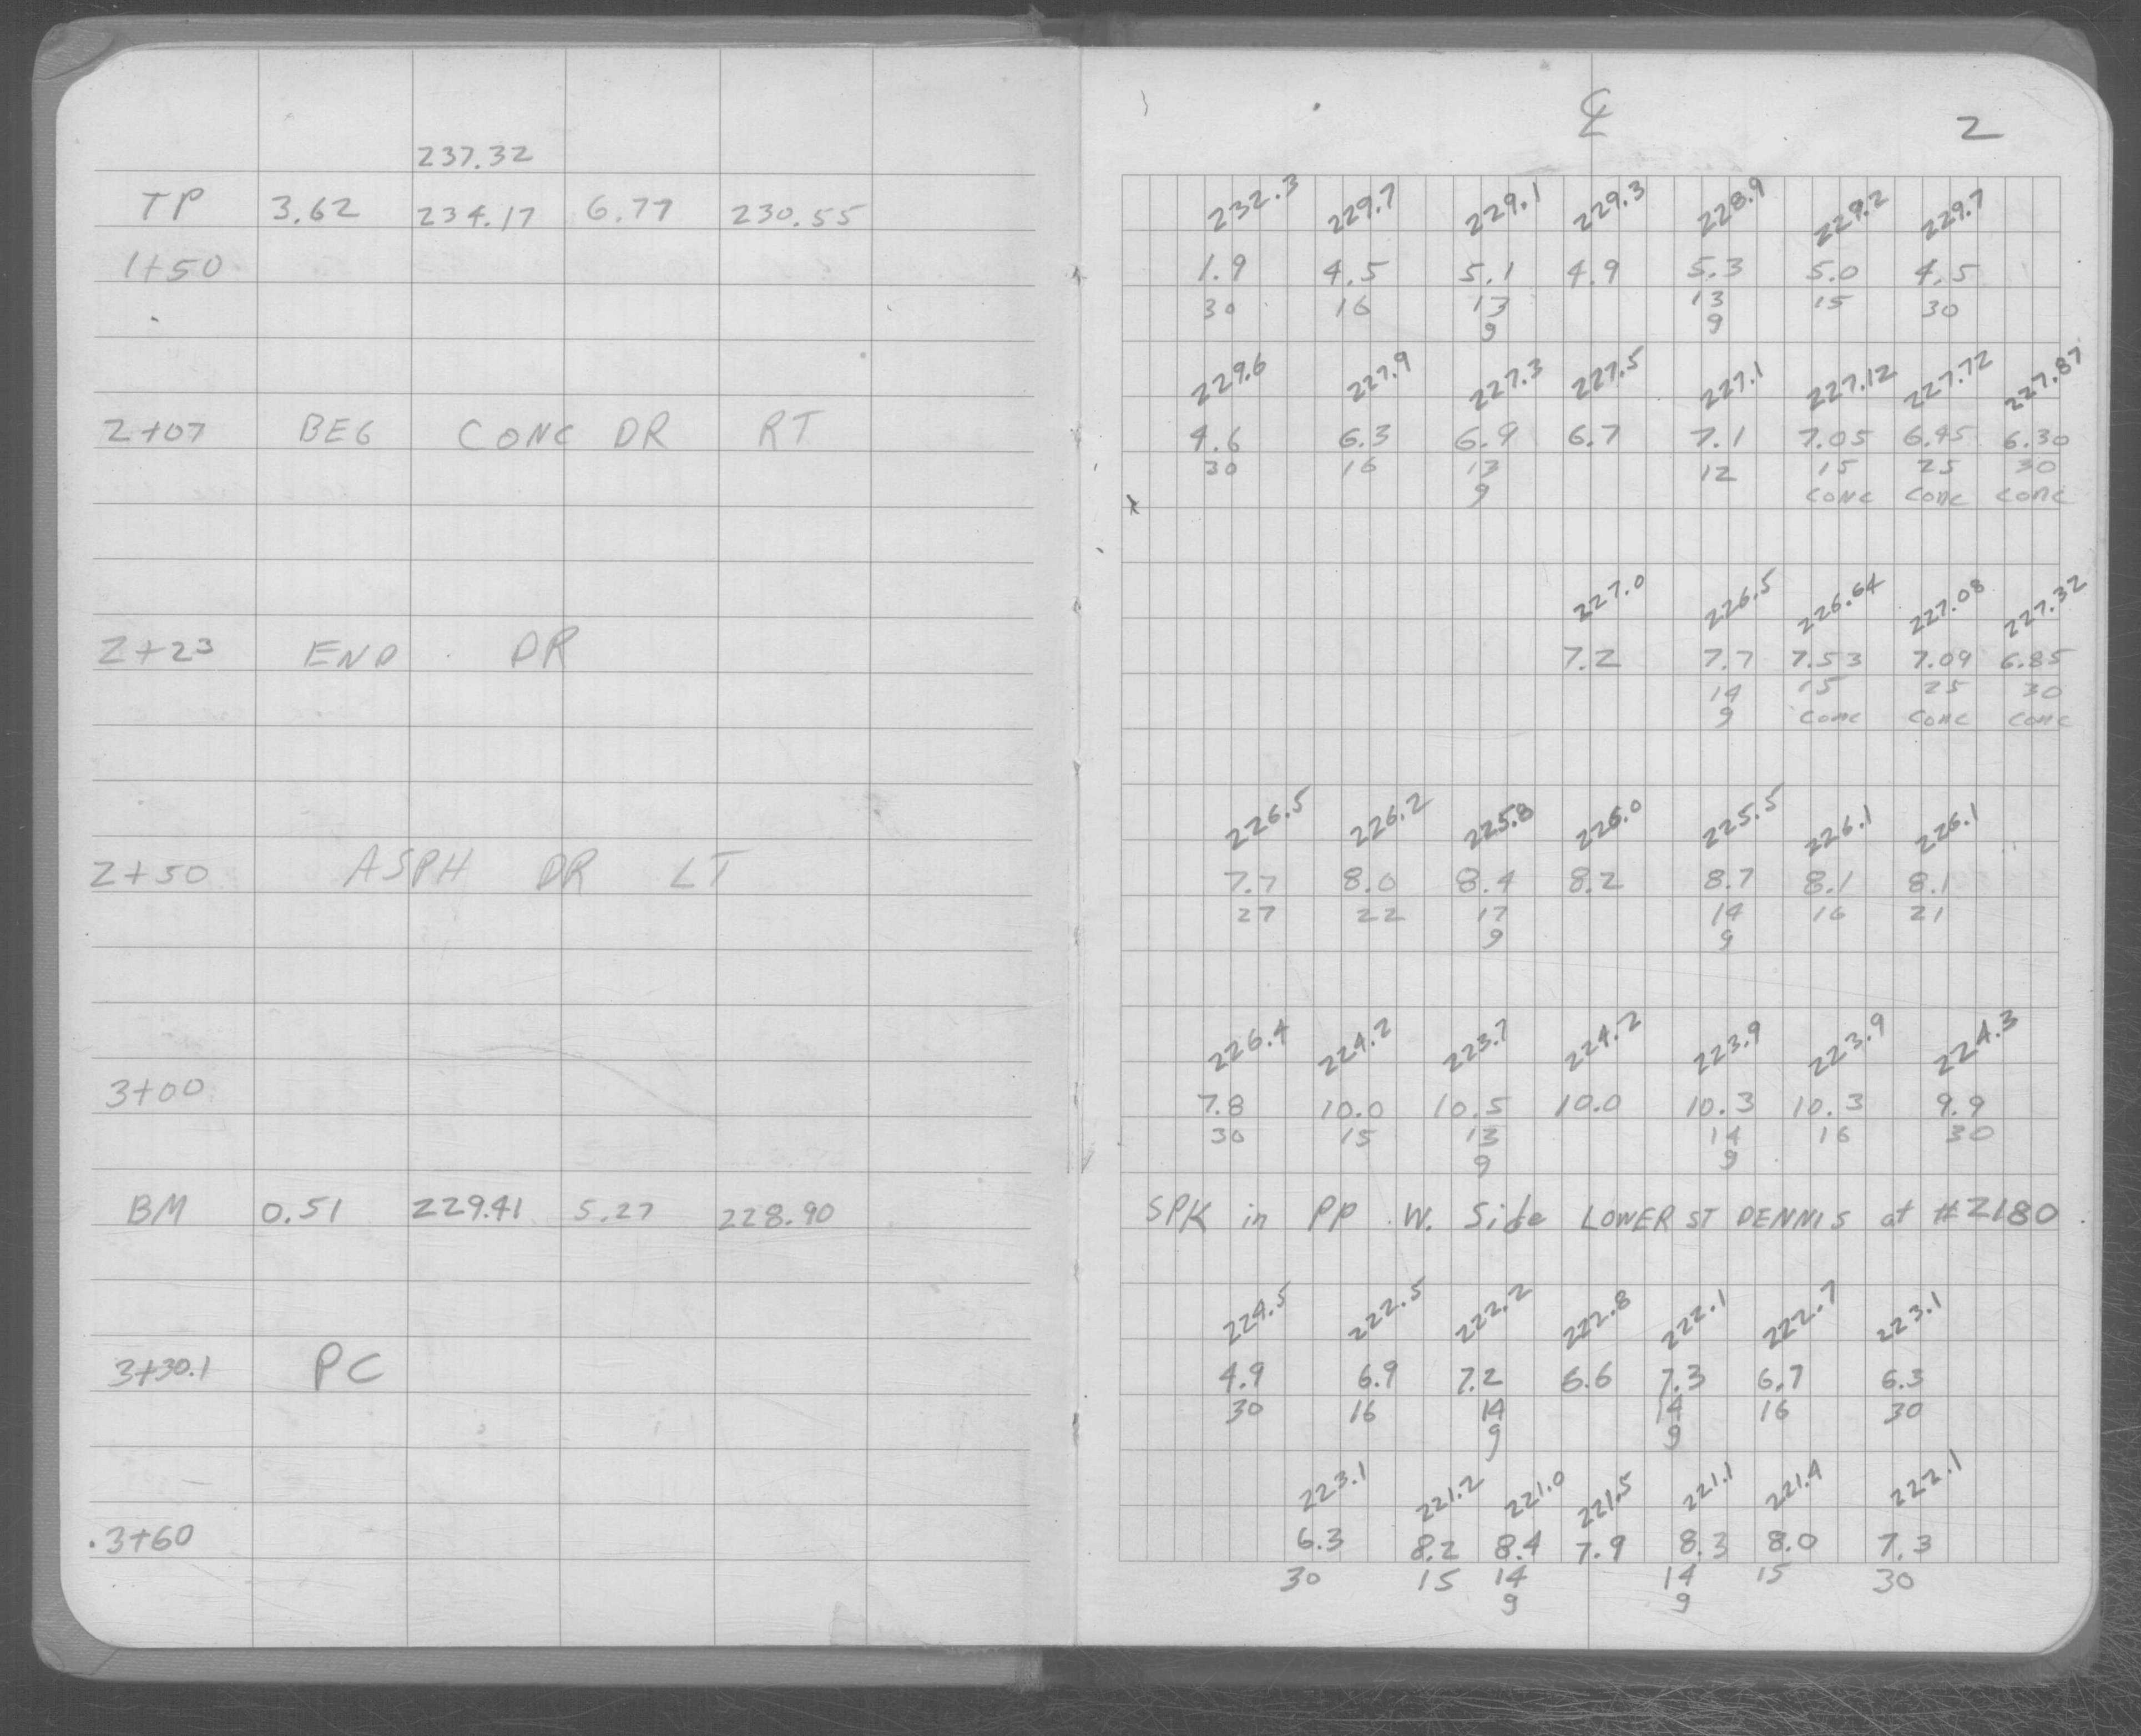 237.32
TP 3.62 234.17 6.77 230.55
1+50
2+07 BEG CONC DR RT
2+23 END DR
2+50 ASPH DR LT
3+00
BM 0.51 229.41 5.27 228.90
3+30.1 PC
3+60
℄ 2
232.3 229.7 229.1 229.3 228.9 229.2 229.7
1.9 4.5 5.1 4.9 5.3 5.0 4.5
30 16 13 13 15 30
9 9
229.6 227.9 227.3 227.5 227.1 227.12 227.72 227.87
4.6 6.3 6.9 6.7 7.1 7.05 6.45 6.30
30 16 13 12 15 25 30
9 CONC CONC CONC
227.0 226.5 226.64 227.08 227.32
7.2 7.7 7.53 7.09 6.85
14 15 25 30
9 CONC CONC CONC
226.5 226.2 225.8 226.0 225.5 226.1 226.1
7.7 8.0 8.4 8.2 8.7 8.1 8.1
27 22 17 14 16 21
9 9
226.4 224.2 223.7 224.2 223.9 223.9 224.3
7.8 10.0 10.5 10.0 10.3 10.3 9.9
30 15 13 14 16 30
9 9
SPK in PP W. Side LOWER ST DENNIS at #2180
224.5 222.5 222.2 222.8 222.1 222.7 223.1
4.9 6.9 7.2 6.6 7.3 6.7 6.3
30 16 14 14 16 30
9 9
223.1 221.2 221.0 221.5 221.1 221.4 222.1
6.3 8.2 8.4 7.9 8.3 8.0 7.3
30 15 14 14 15 30
9 9